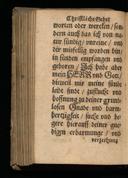 Christliche Gebet
worten oder wercken / son-
dern auch das ich von na-
tur sündig / unreine / und
dir mißfellig worden bin /
in sünden empfangen und
geboren / Ich habe aber
mein HERR und Gott /
bieweil mir meine sünde
leide sind / zuflucht und
hoffnung zu deiner grund-
losen Gnade und barm-
hertzigkeit / suche und be-
gere derauff deiner gne-
digen erbarmunge / und
verzeihung